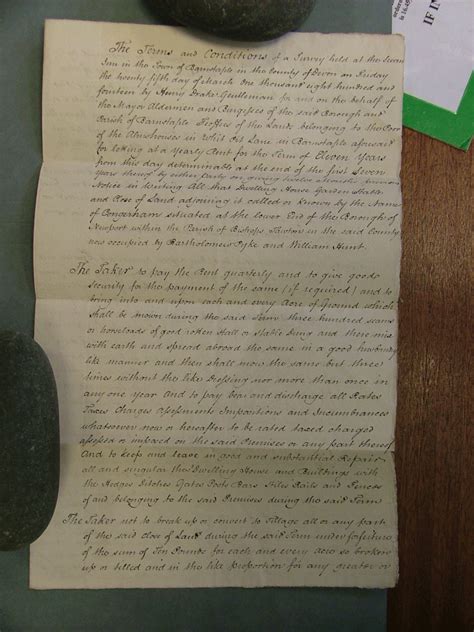 The Terms and Conditions of a Survey held at the Swan
Inn in the Town of Barnstaple in the County of Devon on Friday
the twenty fifth day of March One thousand eight hundred and
fourteen by Henry Drake Gentleman for and on the behalf of
the Mayor Aldermen and Burgesses of the said Borough and
Parish of Barnstaple Feoffees of the Lands belonging to the Poor
of the Almshouses in Lane in Barnstaple aforesaid
for letting at a Yearly Rent for the Term of Eleven Years
from this day determinable at the end of the first Seven
Years thereof by either Party on giving twelve Months previous
Notice in Writing All that Dwelling House Garden
and Close of Land adjoining it called or known by the Name
of Congerham situated at the lower End of the Borough of
Newport within the Parish of Bishops Tawton in the said County
now occupied by Bartholomew Pyke and William Hunt.
The Taker to pay the Rent quarterly and to give good
Security for the payment of the same (if required) and to
bring into and upon each and every Acre of Ground which
shall be mown during the said Term three hundred seams
or horseloads of good rotten Stall or Stable Dung and there mix
with earth and spread abroad the same in a good husband
like manner and then shall mow the same but three
times without the like Dressing nor more than once in
any one year And to pay bear and discharge all Rates
Taxes Charges Assessments Impositions and Incumbrances
whatsoever now or hereafter to be rated taxed charged
assessed or imposed on the said Premises or any part thereof
And to keep and leave in good and substantial Repair
all and singular the Dwelling House and Buildings with
the Hedges Ditches Gates Posts Bars Stiles Rails and Fences
of and belonging to the said Premises during the said Term
The Taker not to break up or convert to Tillage all or any part
of the said Close of Land during the said Term under forfeiture
of the sum of Ten Pounds for each and every acre so broken
up or tilled and in the like proportion for any greater or
IF IN